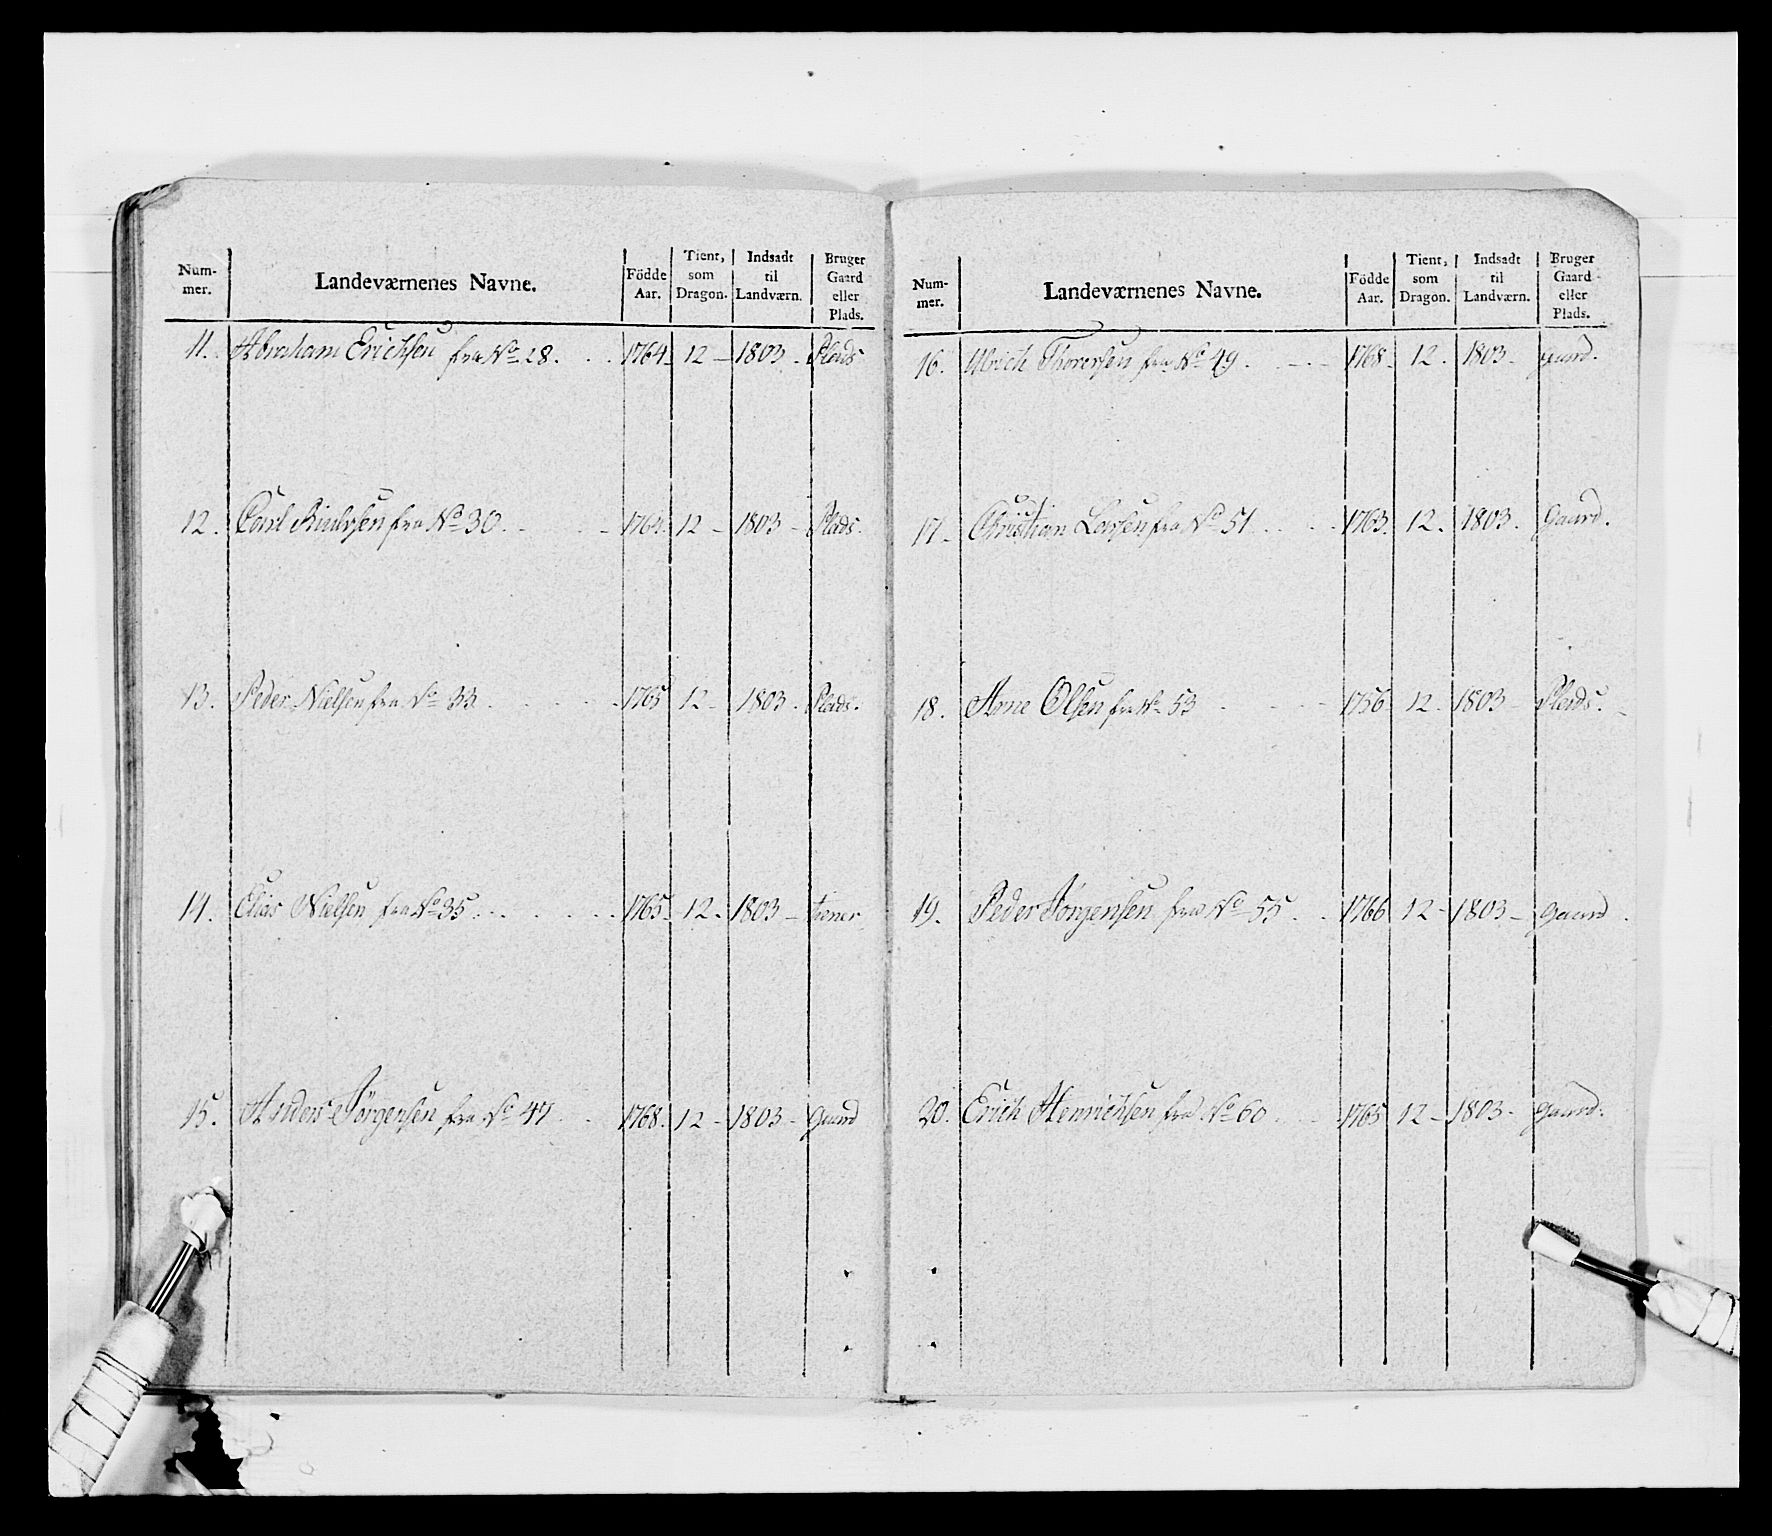 Num-
mer.
Landeværnenes Navne.
Födde
Aar.
Tient,
som
Dragon.
Indsadt
til
Landværn.
Bruger
Gaard
eller
Plads.
11. Abraham Erichsen fra No 28. 1764 12 - 1803. Plads
12. Carl fra No 30. 1764. 12 - 1803 - Plads.
13. Peder Nielsen fra No 33 1765 12 - 1803. Plads.
14. Elias Nielsen fra No 35. 1765. 12. 1803 - tiener
15. Anders Jörgensen fra No 47 1768. 12 - 1803 - Gaard
Num-
mer.
Landeværnenes Navne.
Födde
Aar.
Tient,
som
Dragon.
Indsadt
til
Landværn.
Bruger
Gaard
eller
Plads.
16. Ulrich Thoresen fra No 49. 1768. 12. 1803 - Gaard.
17. Christian Larsen fra No 51 1763. 12. 1803. Gaard.
18. Arne Olsen fra No 53 1756 12. 1803 - Plads.
19. Peder Jörgensen fra No 55. 1766 12 - 1803 - Gaard.
20. Erich Henrichsen fra No 60 1765 12 - 1803 - Gaard.